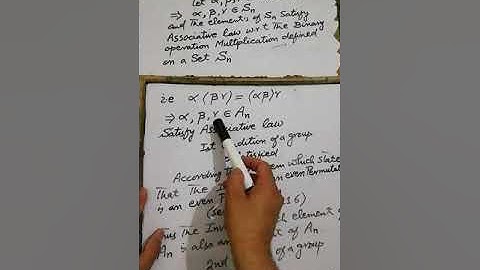 let α, β,
⇒ α, β, γ ∈ Sn
and The elements of Sn satisfy
Associative law w.r.t The Binary
operation Multiplication defined
on a Set Sn
i.e α (βγ) = (αβ)γ
⇒ α, β, γ ∈ An
Satisfy Associative law
Ist condition of a group
According which state
That The I an even Permutat
is an even 16)
(se
Thus The Inv element of
is also an of An
2nd of a group